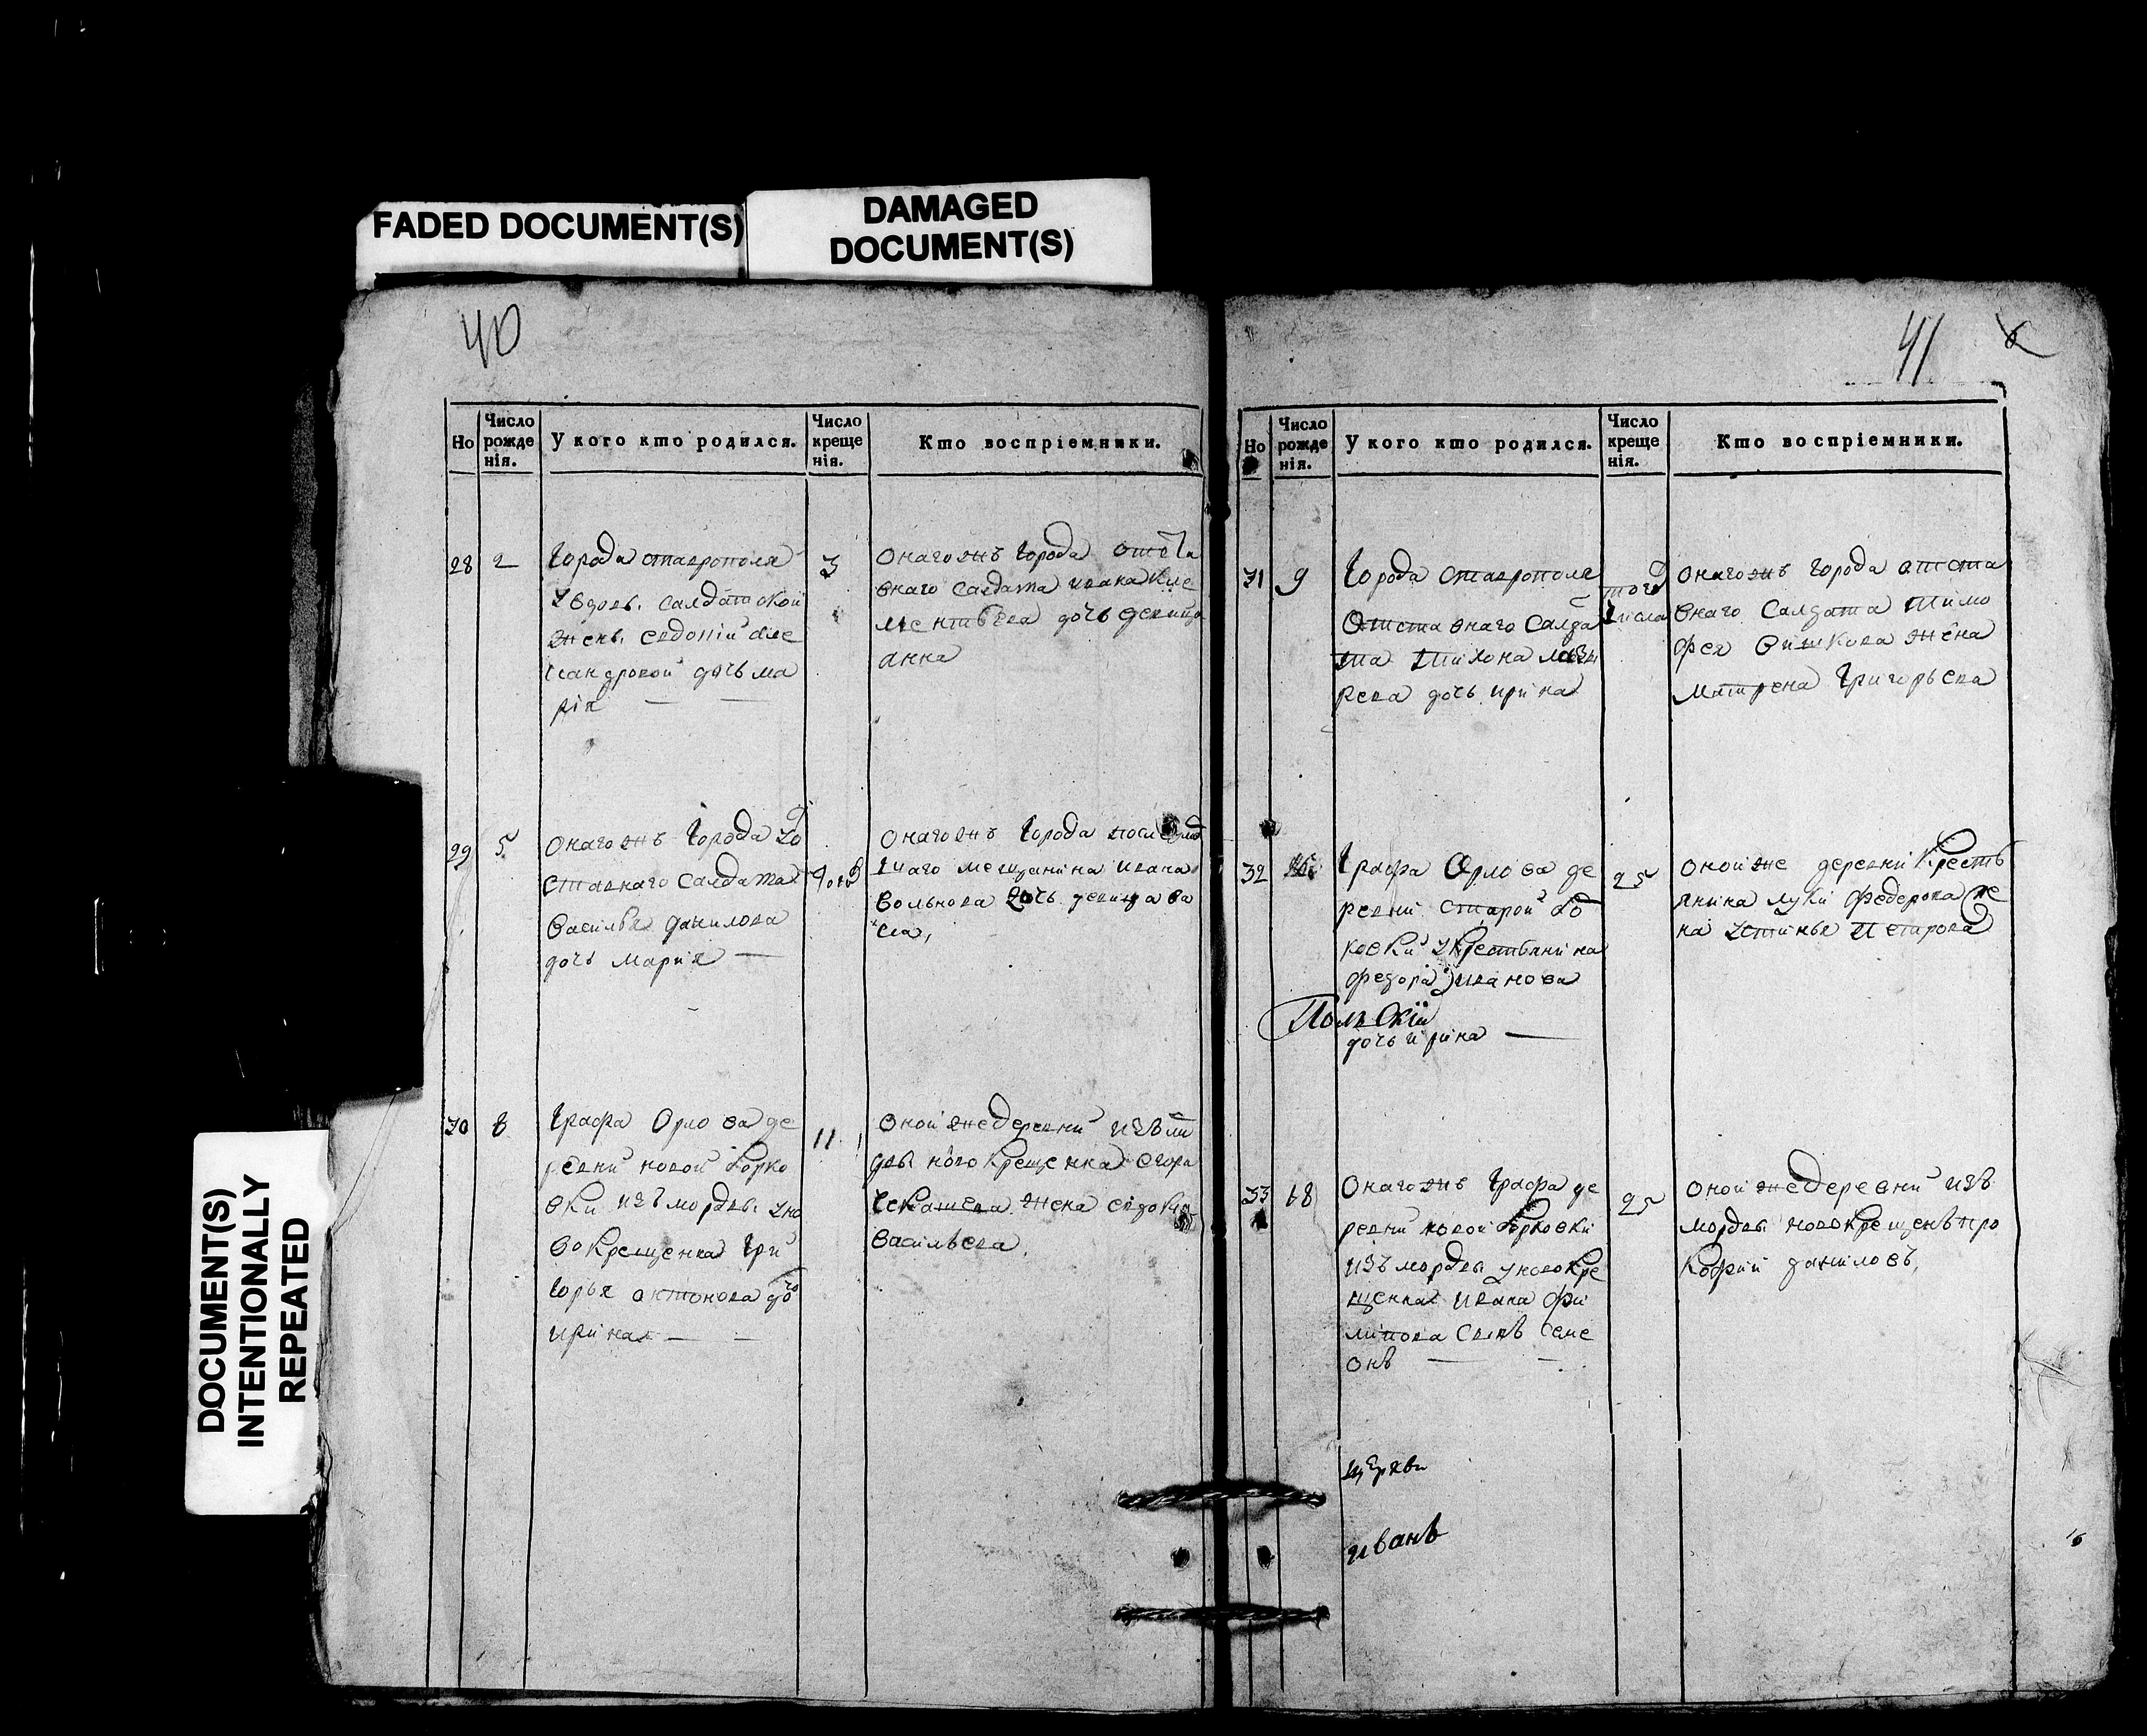 FADED DOCUMENT(S)
DAMAGED
DOCUMENT(S)
DOCUMENT(S)
INTENTIONALLY
REPEATED
40
Но
Число рожде нія.
У кого кто родился.
Число креще нія.
Кто воспріемники.
28
2
города ставрополя
у вдовъ. салдатской
жены. евдокіи алѣ
ксандровой дочь ма
рія
3
онагожъ города
внаго салдата ивана кле
ментьева дочь девица
анна
29
5
онагожъ города
ставнаго салдата
василья данилова
дочь марія
онагожъ города
щаго мещанина ивана
вольнова дочь девица ва
са,
30
8
графа Орлова де
ревни новой борко
вки изъ мордвы. уно
вокрещенна гри
горья антонова дочь
ирина
11
оной жедеревни изъ
двы новокрещенна егора
жена евдокия
васильева.
41
6
Но
Число рожде нія.
У кого кто родился.
Число креще нія.
Кто воспріемники.
31
9
города ставрополя
отставнаго салда
та тихона лаза
рева дочь ирина
того
числа
онагожъ города отста
внаго салдата тимо
фея жена
матрена григорьева
32
графа Орлова де
ревни старой бо
ковки у крестьянина
федора иванова
Польскій
дочь ирина
25
оной же деревни кресть
янина луки федорова же
на устинья петрова
33
18
онагожъ графа де
ревни новой борковки
изъ мордвы уновокре
щенна ивана фи
липова сынъ симе
онъ
25
оной жедеревни изъ
мордвы новокрещенъ про
кофий даниловъ,
церкви
иванъ